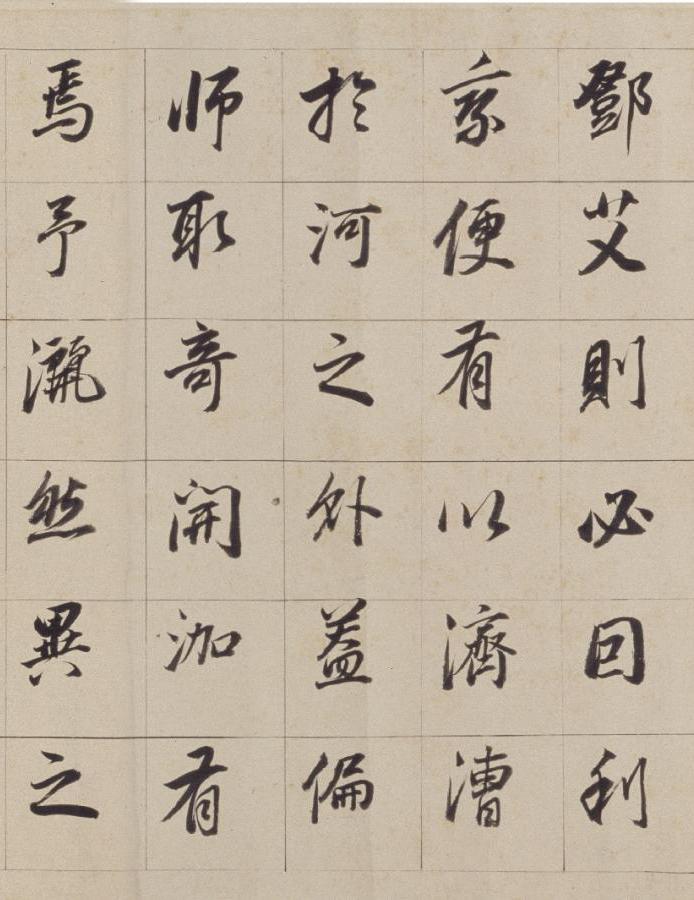 鄧艾則必因利
乘便有以濟漕
於河之外蓋偏
师取奇開泇有
焉予灑然異之